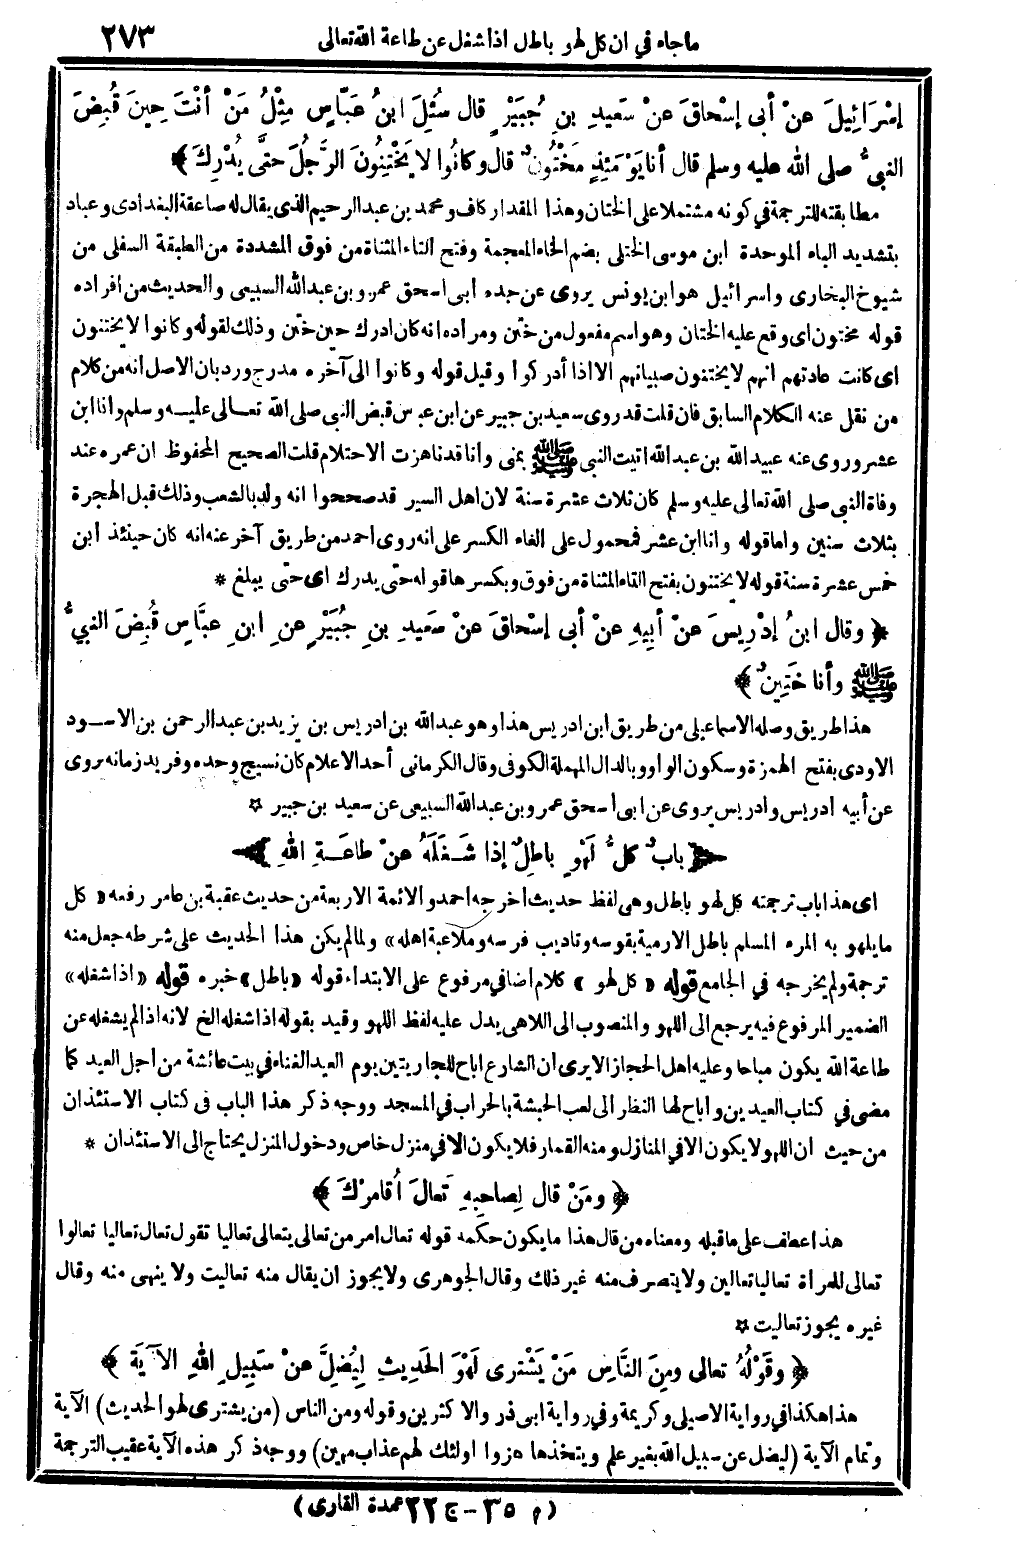 ماجاء في ان كل لهو باطل اذا شغل عن طاعة الله تعالى ٢٧٣
إِسْرَائِيلَ عنْ أبي إسْحاقَ عنْ سَعِيدِ بنِ جُبَيْرٍ قال سُئِلَ ابنُ عَبّاسٍ مِثْلُ مَنْ أنْتَ حِينَ قُبِضَ
النبيُّ صلى الله عليه وسلم قال أنا يَوْمَئِذٍ مَخْتُونٌ قال وكانُوا لا يَخْتِنُونَ الرَّجُلَ حتَّى يُدْرِكَ ﴾
مطابقته للترجمة في كونه مشتملا على الختان وهذا المقدار كاف ومحمد بن عبد الرحيم الذى يقال له صاعقة البغدادى وعباد
بتشديد الباء الموحدة ابن موسى الختلى بضم الخاء المعجمة وفتح التاء المثناة من فوق المشددة من الطبقة السفلى من
شيوخ البخارى واسرائيل هو ابن يونس يروى عن جده ابى اسحق عمرو بن عبد الله السبيعى والحديث من افراده
قوله مختون اى وقع عليه الختان وهو اسم مفعول من ختن ومراده انه كان ادرك حين ختن وذلك لقوله وكانوا لا يختنون
اى كانت عادتهم انهم لا يختنون صبيانهم الا اذا أدركوا وقيل قوله وكانوا الى آخره مدرج ورد بان الاصل انه من كلام
من نقل عنه الكلام السابق فان قلت قد روى سعيد بن جبير عن ابن عباس قبض النبى صلى الله تعالى عليه وسلم وانا ابن
عشر وروى عنه عبيد الله بن عبد الله اتيت النبى ﷺ بمنى وأنا قد ناهزت الاحتلام قلت الصحيح المحفوظ ان عمره عند
وفاة النبى صلى الله تعالى عليه وسلم كان ثلاث عشرة سنة لان اهل السير قد صححوا انه ولد بالشعب وذلك قبل الهجرة
بثلاث سنين واما قوله وانا ابن عشر فمحمول على الغاء الكسر على انه روى احمد من طريق آخر عنه انه كان حينئذ ابن
خمس عشرة سنة قوله لا يختنون بفتح التاء المثناة من فوق وبكسرها قوله حتى يدرك اى حتى يبلغ *
﴿ وقال ابنُ إدْرِيسَ عنْ أبِيهِ عنْ أبي إسْحاقَ عنْ سَعِيدِ بنِ جُبَيْرٍ عنِ ابنِ عبَّاسٍ قُبِضَ النبيُّ
ﷺ وأنا خَتِينٌ ﴾
هذا طريق وصله الاسماعيلى من طريق ابن ادريس هذا وهو عبد الله بن ادريس بن يزيد بن عبد الرحمن بن الاسود
الاودى بفتح الهمزة وسكون الواو وبالدال المهملة الكوفى وقال الكرمانى أحد الاعلام كان نسيج وحده وفريد زمانه يروى
عن أبيه ادريس وادريس يروى عن ابى أسحق عمرو بن عبد الله السبيعى عن سعيد بن جبير *
﴿ بابٌ كلُّ لَهْوٍ باطِلٌ إذا شَغَلَهُ عنْ طاعَةِ اللهِ ﴾
اى هذا باب ترجمته كل لهو باطل وهى لفظ حديث اخرجه احمد والائمة الاربعة من حديث عقبة بن عامر رفعه « كل
ما يلهو به المرء المسلم باطل الا رميه بقوسه وتاديب فرسه وملاعبة اهله» ولما لم يكن هذا الحديث على شرطه جعل منه
ترجمة ولم يخرجه في الجامع قوله « كل لهو » كلام اضافي مرفوع على الابتداء قوله «باطل» خبره قوله «اذا شغله»
الضمير المرفوع فيه يرجع الى اللهو والمنصوب الى اللاهى يدل عليه لفظ اللهو وقيد بقوله اذا شغله الخ لانه اذا لم يشغله عن
طاعة الله يكون مباحا وعليه اهل الحجاز الا يرى ان الشارع اباح للجاريتين يوم العيد الغناء في بيت عائشة من اجل العيد كما
مضى في كتاب العيدين واباح لها النظر الى لعب الحبشة بالحراب في المسجد ووجه ذكر هذا الباب فى كتاب الاستئذان
من حيث ان اللهو لا يكون الا في المنازل ومنه القمار فلا يكون الا في منزل خاص ودخول المنزل يحتاج الى الاستئذان *
﴿ ومَنْ قال لِصاحِبِهِ تَعالَ أُقامِرْكَ ﴾
هذا عطف على ما قبله ومعناه من قال هذا ما يكون حكمه قوله تعال امر من تعالى يتعالى تعاليا تقول تعال تعاليا تعالوا
تعالى للمرأة تعاليا تعالين ولا يتصرف منه غير ذلك وقال الجوهرى ولا يجوز ان يقال منه تعاليت ولا ينهى منه وقال
غيره يجوز تعاليت *
﴿ وقَوْلُهُ تعالى ومِنَ النَّاسِ مَنْ يَشْتَرِى لَهْوَ الحَدِيثِ لِيُضِلَّ عنْ سَبِيلِ اللهِ الآيَةَ ﴾
هذا هكذا في رواية الاصيلى وكريمة وفي رواية ابى ذر والاكثرين وقوله ومن الناس (من يشترى لهو الحديث) الآية
وتمام الآية (ليضل عن سبيل الله بغير علم ويتخذها هزوا اولئك لهم عذاب مهين) ووجه ذكر هذه الآية عقيب الترجمة
(م ٣٥ - ج ٢٢ عمدة القارى)